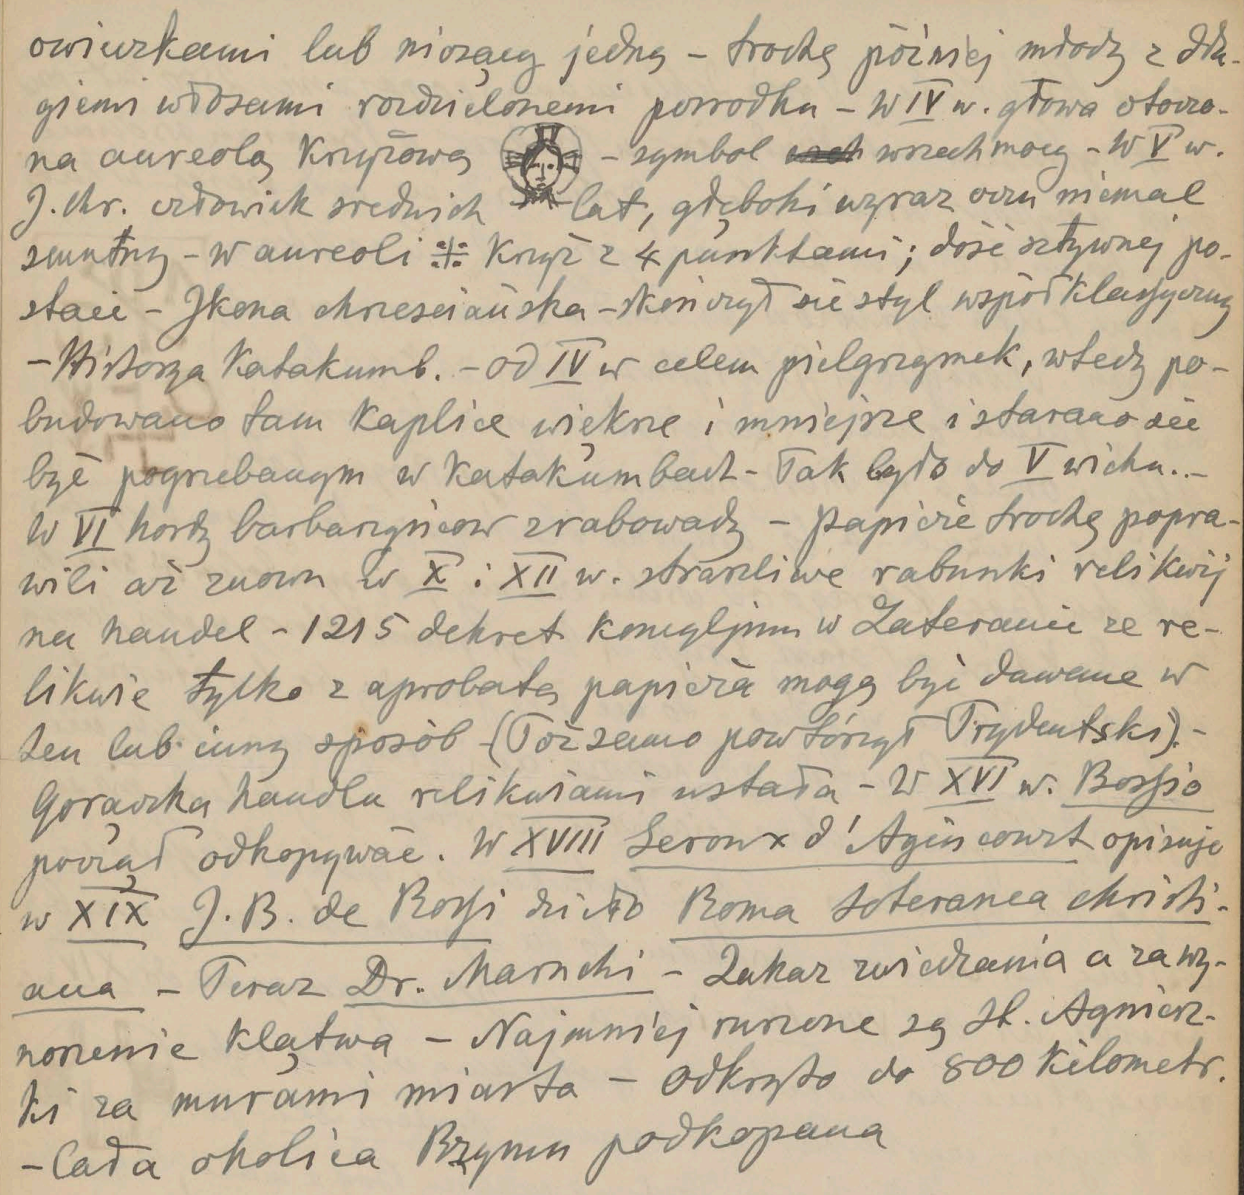 owieczkami lub niosący jedną – trochę później młody z dłu-
giemi włosami rozdzielonemi pośrodku – W IV w. głowa otoczo-
na aureolą krzyżową – symbol wszechmocy – W V w.
J. Chr. człowiek średnich lat, głęboki wyraz oczu niemal
smutny – w aureoli krzyż z 4 punktami; dość sztywnej po-
staci – Ikona chrześciańska – skończył się styl współklasyczny
– Historya Katakumb. – od IV w celem pielgrzymek, wtedy po-
budowano tam kaplice większe i mniejsze i starano się
być pogrzebanym w Katakumbach – Tak było do V wieku. –
W VI hordy barbarzyńców zrabowały – papieże trochę popra-
wili aż znown w X i XII w. straszliwe rabunki relikwij
na handel – 1215 dekret koncyljum w Lateranie że re-
likwie tylko z aprobatą papieża mogą być dawane w
ten lub inny sposób – (Toż samo powtórzył Trydentski). –
Gorączka handlu relikwiami ustała – W XVI w. Bossio
począł odkopywać. W XVIII Seroux d'Agincourt opisuje
w XIX J. B. de Rossi dzieło Roma soteranea christi-
ana – Teraz Dr. Maruchi – Zakaz zwiedzania a za wy-
noszenie klątwa – Najmniej ruszone są St. Agniesz-
ki za murami miasta – odkryto do 800 kilometr.
– Cała okolica Rzymu podkopana